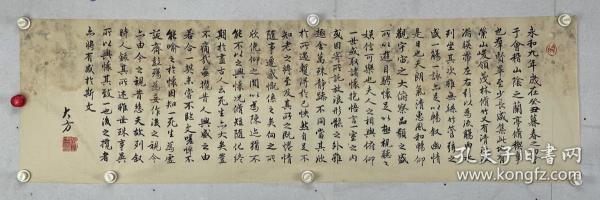 永和九年歲在癸丑暮春之初
于會稽山陰之蘭亭脩禊事
也羣賢畢至少長咸集此地有
崇山峻領茂林脩竹又有清流
湍映帶左右引以為流觴
列坐其次雖無絲竹管弦之
盛一觴一詠亦足以暢敘幽情
是日也天朗氣清惠風和暢仰
觀宇宙之大俯察品類之盛
所以遊目騁懷足以極視聽之
娛信可樂也夫人之相與俯仰
一世或取諸懷抱悟言一室之內
或因寄所託放浪形骸之外雖
趣舍萬殊靜躁不同當其欣
於所遇暫得於己快然自足不
知老之將至及其所之既惓情
隨事遷感慨係之矣向之所
欣俛仰之間以為陳迹猶不
能不以之興懷況脩短隨化終
期於盡古人云死生亦大矣豈
不痛哉每攬昔人興感之由
若合一契未嘗不臨文嗟悼不
能喻之於懷固知一死生為虛
誕齊彭殤為妄作後之視今
亦由今之視昔悲夫故列敘
時人錄其所述雖世殊事異
所以興懷其致一也後之攬者
亦將有感於斯文
大方
孔夫子旧书网